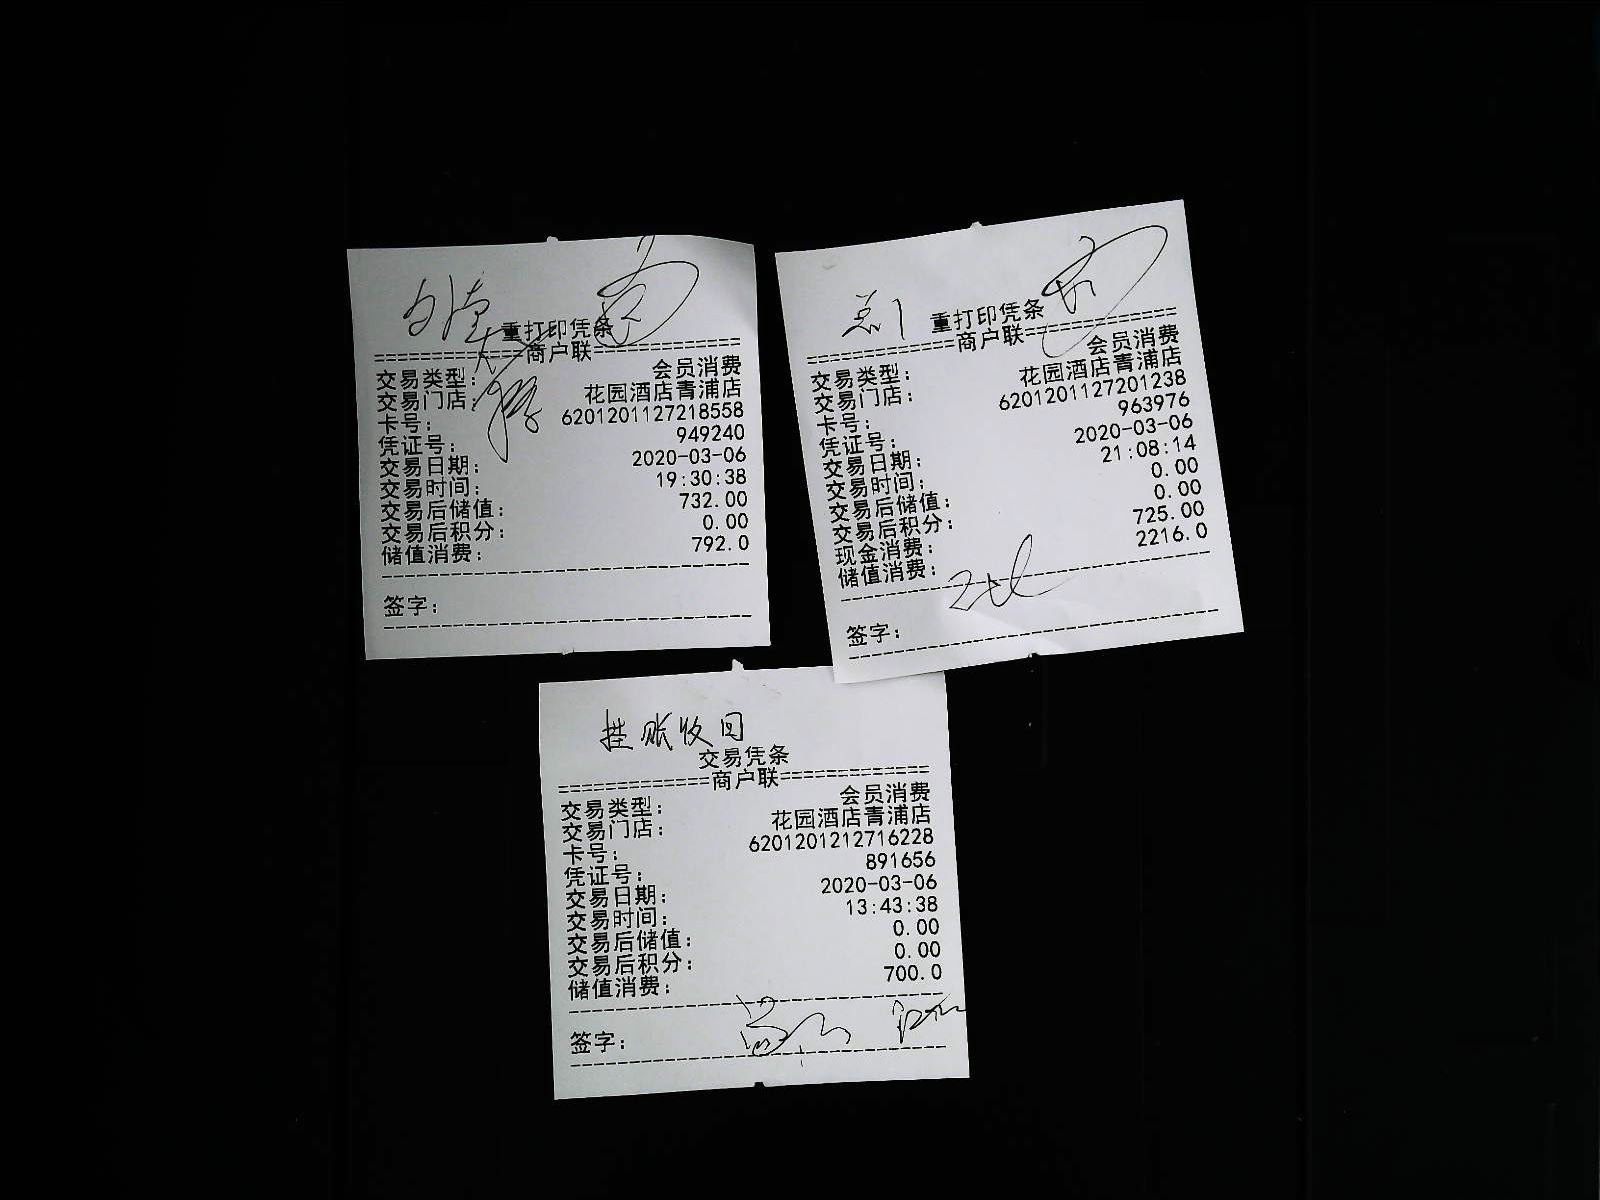 重打印凭条
================商户联================
交易类型： 会员消费
交易门店： 花园酒店青浦店
卡号： 6201201127218558
凭证号： 949240
交易日期： 2020-03-06
交易时间： 19:30:38
交易后储值： 732.00
交易后积分： 0.00
储值消费： 792.0
签字：
重打印凭条
================商户联================
交易类型： 会员消费
交易门店： 花园酒店青浦店
卡号： 6201201127201238
凭证号： 963976
交易日期： 2020-03-06
交易时间： 21:08:14
交易后储值： 0.00
交易后积分： 0.00
现金消费： 725.00
储值消费： 2216.0
签字：
挂账收回
交易凭条
================商户联================
交易类型： 会员消费
交易门店： 花园酒店青浦店
卡号： 6201201212716228
凭证号： 891656
交易日期： 2020-03-06
交易时间： 13:43:38
交易后储值： 0.00
交易后积分： 0.00
储值消费： 700.0
签字：